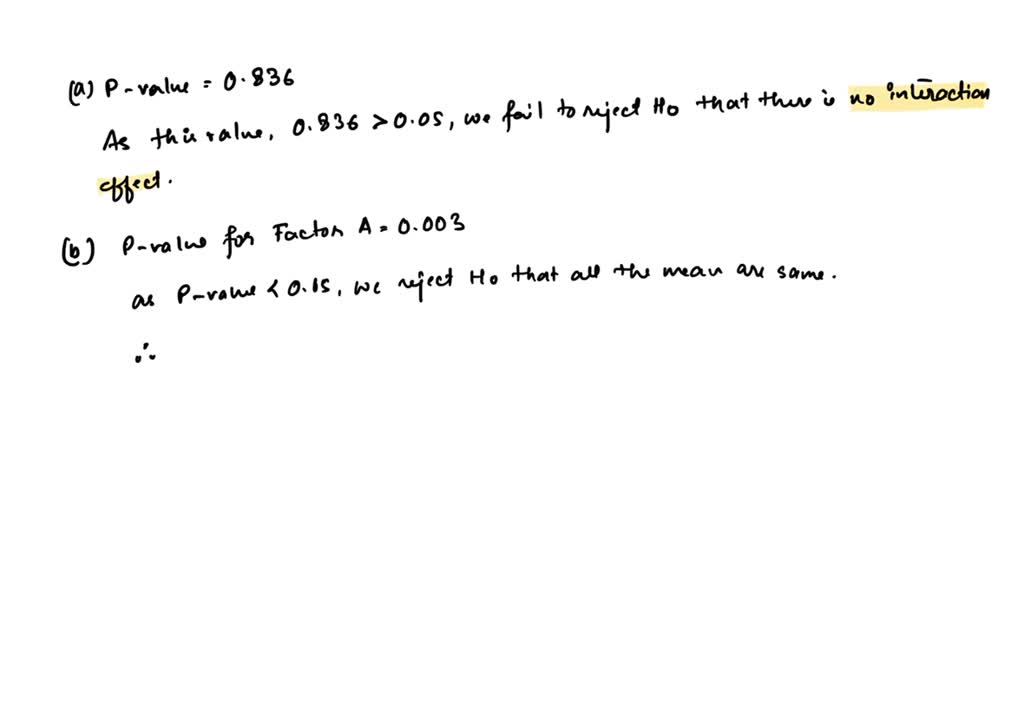 (a) P-value = 0.836
As this value, 0.836 > 0.05, we fail to reject Ho that there is no interaction
effect.
(b) P-value for Factor A = 0.003
as P-value < 0.15, we reject Ho that all the mean are same.
∴